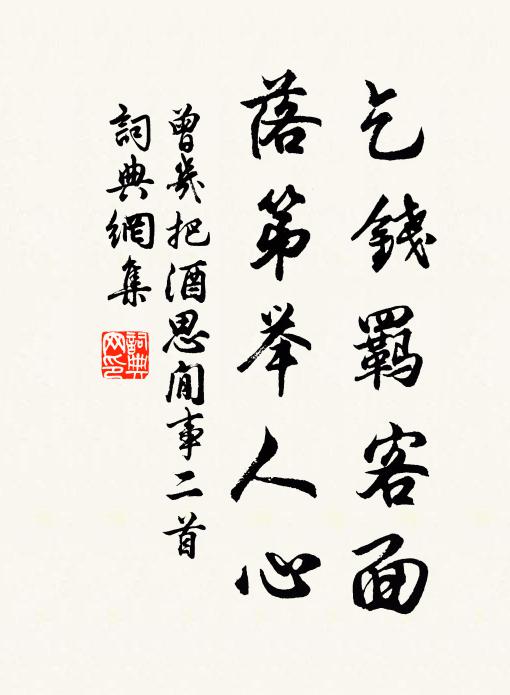 乞錢羈客面
落第举人心
曾幾把酒思閒事二首
詞典網集
詞典网印